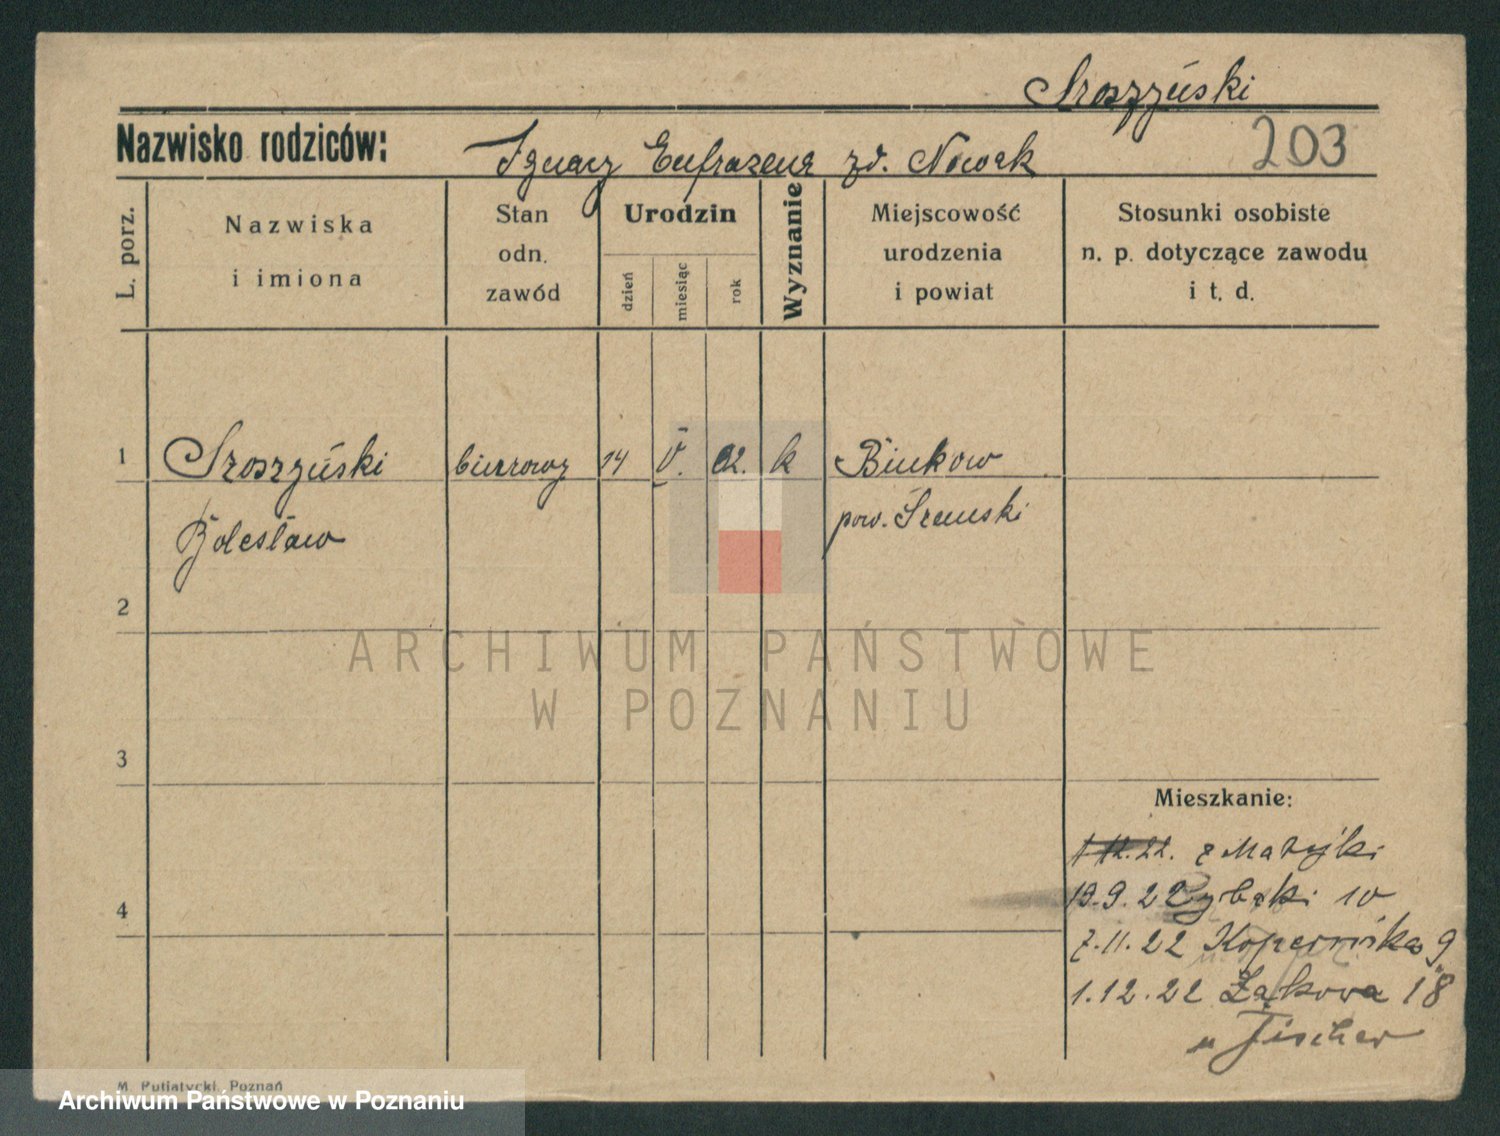 Sroszyński
Nazwisko rodziców: Ignacy Eufrazena zd. Nowak 203
L. porz.
Nazwiska
i imiona
Stan
odn.
zawód
Urodzin
dzień
miesiąc
rok
Wyznanie
Miejscowość
urodzenia
i powiat
Stosunki osobiste
n. p. dotyczące zawodu
i t. d.
1 Sroszyński biurowy 14 V. 02. k Binkow
Bolesław pow. Śremski
2
3
4
Mieszkanie:
z Matejki
19.9.22 Rybaki 10
7.11.22 Kopernika 9
1.12.22 Łąkowa 18
u Fischer
M. Putiatycki, Poznań
ARCHIWUM PAŃSTWOWE
W POZNANIU
Archiwum Państwowe w Poznaniu